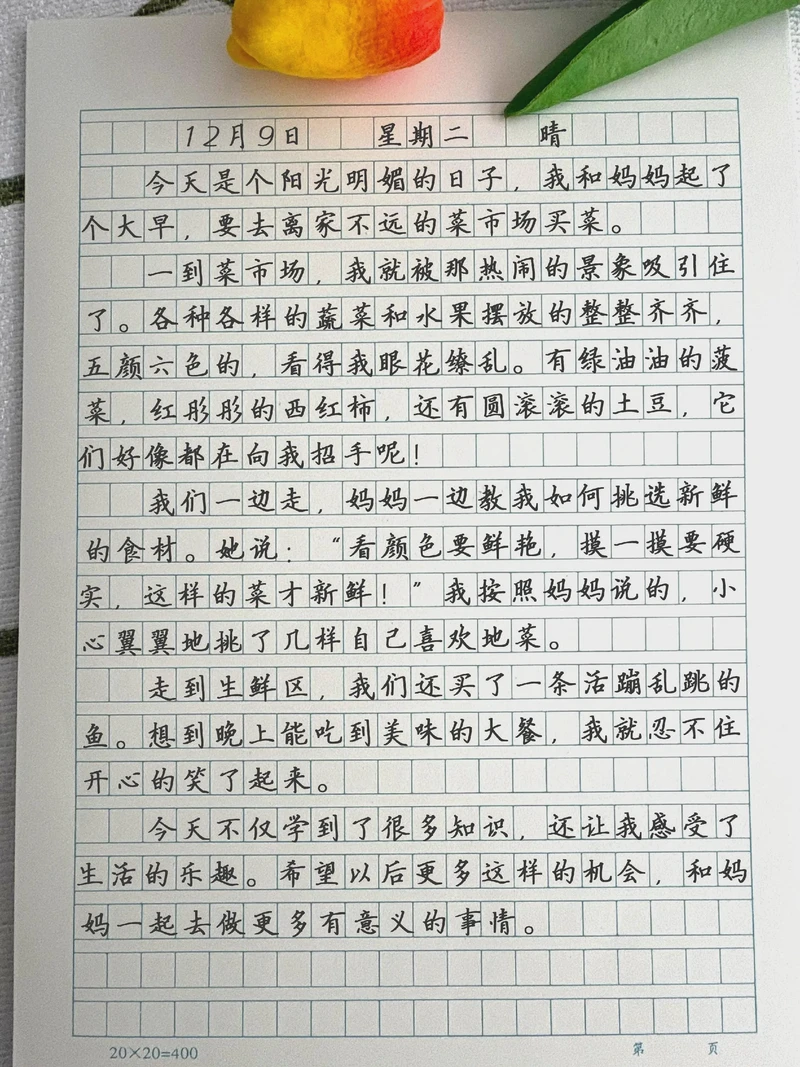 12月9日 星期二 晴
今天是个阳光明媚的日子，我和妈妈起了
个大早，要去离家不远的菜市场买菜。
一到菜市场，我就被那热闹的景象吸引住
了。各种各样的蔬菜和水果摆放的整整齐齐，
五颜六色的，看得我眼花缭乱。有绿油油的菠
菜，红彤彤的西红柿，还有圆滚滚的土豆，它
们好像都在向我招手呢！
我们一边走，妈妈一边教我如何挑选新鲜
的食材。她说：“看颜色要鲜艳，摸一摸要硬
实，这样的菜才新鲜！”我按照妈妈说的，小
心翼翼地挑了几样自己喜欢地菜。
走到生鲜区，我们还买了一条活蹦乱跳的
鱼。想到晚上能吃到美味的大餐，我就忍不住
开心的笑了起来。
今天不仅学到了很多知识，还让我感受了
生活的乐趣。希望以后更多这样的机会，和妈
妈一起去做更多有意义的事情。
20×20=400 第 页